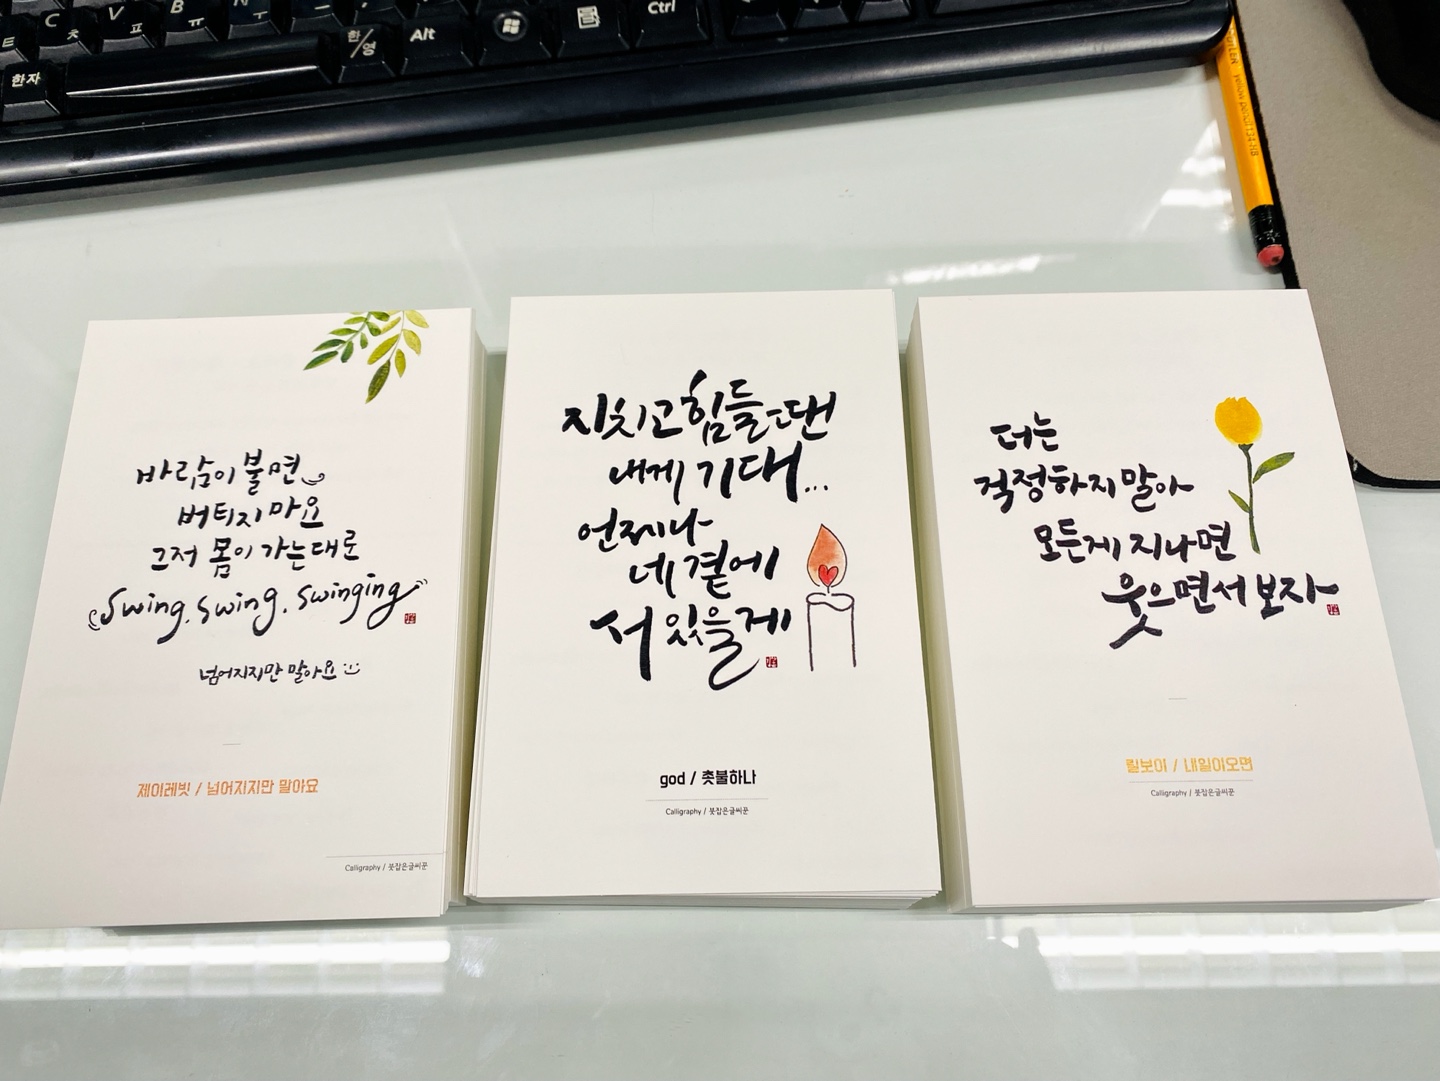 C
V
B
ㅊ
ㅍ
ㅠ
한자
한/영
Alt
Ctrl
yellow pencil 134-HB
바람이 불면
버티지 마요
그저 몸이 가는대로
swing, swing, swinging
넘어지지만 말아요
제이레빗 / 넘어지지만 말아요
Calligraphy / 붓잡은글씨꾼
지치고 힘들 땐
내게 기대...
언제나
네 곁에
서 있을게
god / 촛불하나
Calligraphy / 붓잡은글씨꾼
더는
걱정하지 말아
모든게 지나면
웃으면서 보자
릴보이 / 내일이오면
Calligraphy / 붓잡은글씨꾼